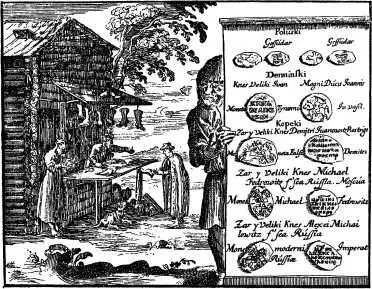 Poluski
Gessudar Gessudar
Derminski
Knes Veliki Ivan Magni Ducis Ioannis
Moneta Tyranni
Kopeki
Zar y Veliki Knes Demitri Ivanowitz
Moneta Falsi Demitri
Zar y Veliki Knes Michael
Fedrowitz fsea Russia. Moscvia
Moneta Michael Fedrowitz
Zar y Veliki Knes Alexei Michai
lowitz fsea Russia
Moneta moderni Imperat
Russiæ